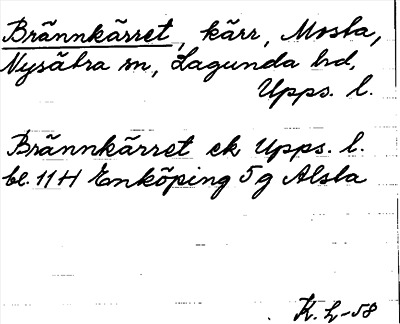 Brännkärret, kärr, Mosta,
Nysätra sn, Lagunda hd,
Upps. l.
Brännkärret ek Upps. l.
bl. 11H Enköping 5g Alsta
K. L-58